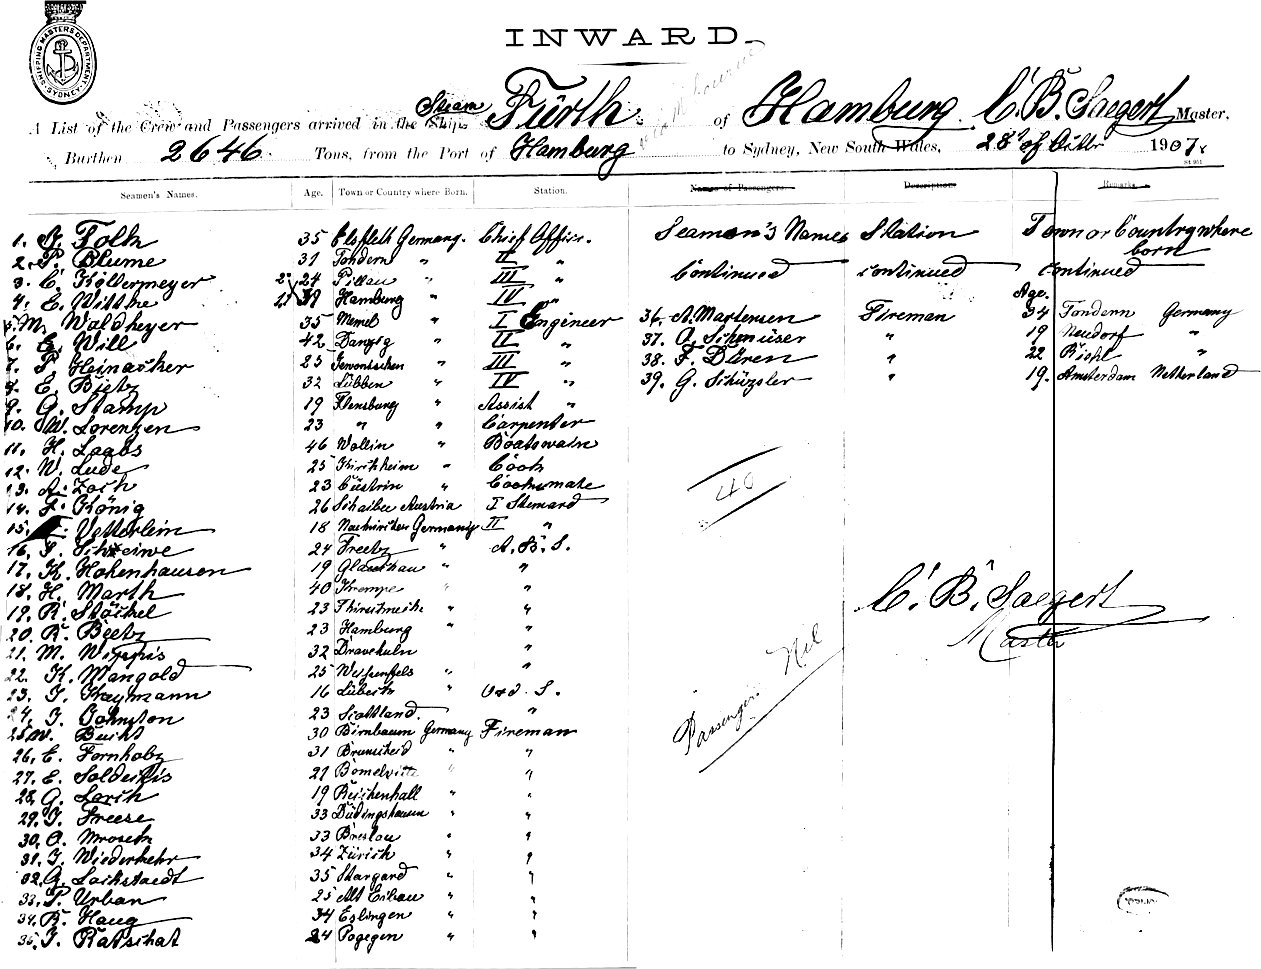 SHIPPING MASTERS DEPARTMENT SYDNEY
INWARD.
A List of the Crew and Passengers arrived in the Steam Ship Fürth of Hamburg C. B. Saegert Master,
Burthen 2646 Tons, from the Port of Hamburg to Sydney, New South Wales, 28th of Octbr 1907
Seamen's Names. Age. Town or Country where Born. Station. Names of Passengers. Description Remarks
Seamen's Names Station Town or Country where born
continued continued continued
Age.
1. Folth 35 Elsfleth Germany. Chief Officer.
2. P. Blume 31 Tondern " II "
3. C.Köllermeyer 24 Pillau " III "
4. E. Witthe Hamburg " IV "
5. M. Waldheyer 35 Memel " I Engineer 36. A. Martensen Fireman 34 Tondern Germany
6. Will 42 Danzig " II " 37. O. Schmüser " 19 Neudorf "
7. P. Heinacker 25 " III " 38. F. Düren " 22 "
8. E. Bietz 32 Lübben " IV " 39. G. Schüzsler " 19. Amsterdam Netherland
9. G. Stamp 19 Flensburg " Assist "
10. W. Lorenzen 23 " " Carpenter
11. H. Laabs 46 Wollin " Boatswain
12. W. Lude 25 Kirchheim " Cook
13. A. Zoch 23 Cüstrin " Cooksmate
14. F. König 26 Austria I Steward
15. Vetterlein 18 Germany II "
16. Scheiwe 24 Freetz " A. B. S.
17. K. Hohenhausen 19 Glauchau " "
18. H. Marth 40 Krempe " "
19. R. Stöckel 23 " "
20. R. Beetz 23 Hamburg " "
21. M. Wippis 32 "
22. K. Mangold 25 Weissenfels " "
23. Freymann 16 Lübeck " Ord. S.
24. J. Johnston 23 Scottland. "
25. W. Bucht 30 Birnbaum Germany Fireman
26. E. Fornholz 31 " "
27. E. 21 " "
28. G. Lorch 19 Reichenhall " "
29. J. Freese 33 Düdingshausen " "
30. O. Mrosek 33 Breslau " "
31. J. Wiederkehr 34 Zürich " "
32. G. Lockstaedt 35 Stargard " "
33. P. Urban 25 Alt Eibau " "
34. R. Haug 34 Eslingen " "
35. J. Ratschat 24 Pogegen " "
40
Passengers Nil
C. B. Saegert
Master